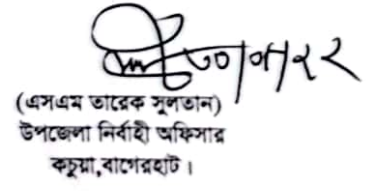 ৩০/০৮/২২
(এসএম তারেক সুলতান)
উপজেলা নির্বাহী অফিসার
কচুয়া,বাগেরহাট।